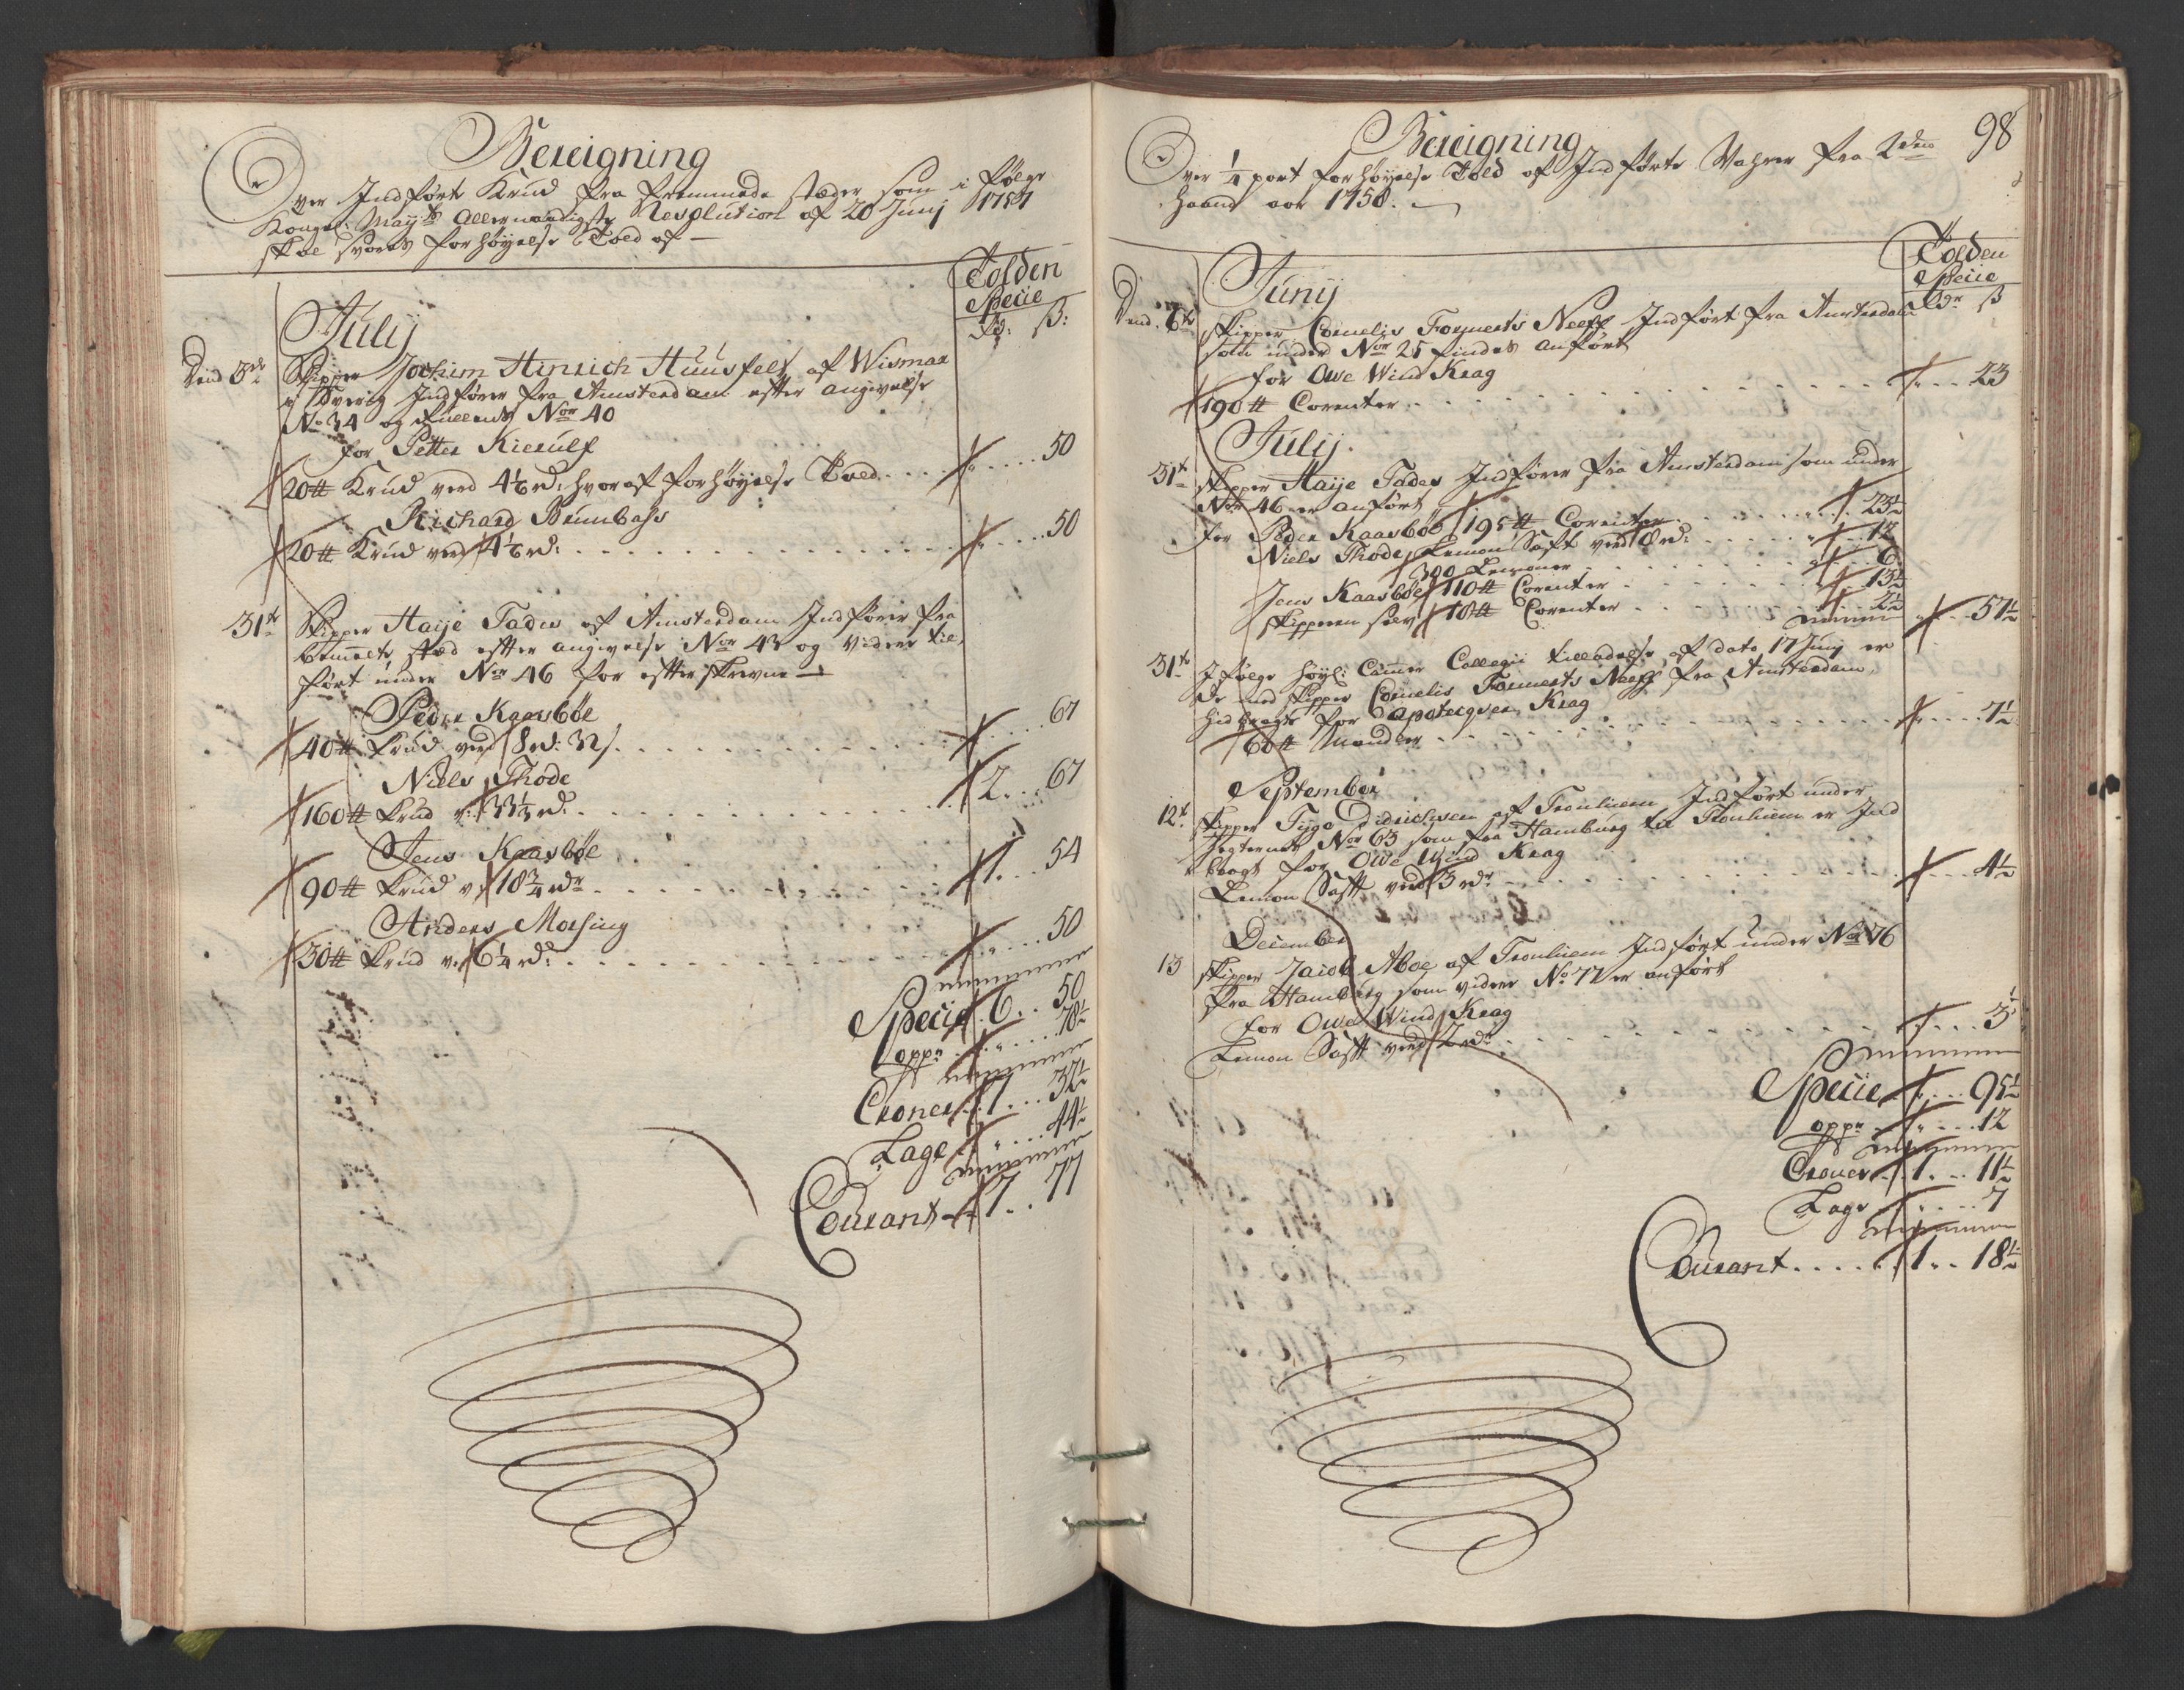 Bereigning
Over Indført Krud fra fremmede stæder som i følge
Kongel: May:ts Allernaadigste Resolution af 20 Junij 1757
skal svares forhøyelse Told af —
Tolden
Specie
Rd: ß:
July
Dend 3de Skipper Jochim Hinrich Huusfelt af Wismar
i Sverig Indfører fra Amsterdam efter angivelse
No 34 og Nor 40
for Petter Kierulf
20 ℔ Krud verd 4 1/6 rd: hvoraf forhøyelse Told . . . . " . . . . 50
Richard Brumbass
20 ℔ Krud verd 4 1/6 rd: . . . . " . . . . 50
31te Skipper Haije Tades af Amsterdam Indfører fra
bemelte stæd efter angivelse Nor 43 og videre til
ført under Nor 46 for efterskrevne —
Peder Kaasbøe
40 ℔ Krud verd 8 rd: 32 ß . . . . " . . . . 67
Niels Thode
160 ℔ Krud v: 33 1/3 rd: . . . . 2 . . . 67
Jens Kaasbøe
90 ℔ Krud v: 18 3/4 rdr . . . . 1 . . . 54
Anders Morsing
30 ℔ Krud v: 6 1/4 rd: . . . . " . . . . 50
Specie . 6 . . 50
opp: . . " . . . 78 1/2
Croner . . 7 . . . 32 1/2
Lage . . " . . . 44 1/2
Courant . . 7 . . 77
98
Bereigning
Over 1/4 part forhøyelse Told af Indførte Vahrer fra 2den
haand aar 1758. —
Tolden
Specie
Rdr ß
Junij
Dend 7te Skipper Cornelis Formerts Neeff Indført fra Amsterdam
som under Nor 25 findes anført
for Owe Wind Krag
190 ℔ Corenter . . . . " . . . 23
Julij.
31te Skipper Haije Tades Indfører fra Amsterdam som under
Nor 46 er anført
for Peder Kaasbøe 195 ℔ Corenter . . . . " . . 23 1/2
Niels Thode Lemon Saft verd 8 rd: . . . . " . . 12
300 Lemoner . . . . " . . 6
Jens Kaasbøe 110 ℔ Corenter . . . . " . . 13 1/2
Skipperen selv 18 ℔ Corenter . . . . " . . 2 1/2 " . . 57 1/2
31te I følge høyl: Cammer Collegii tilladelse af dato 17 Junij er
de med Skipper Cornelis Formerts Neeff fra Amsterdam
hidbragte for Apoteqver Krag
60 ℔ Mandler . . . . " . . . . 7 1/2
September
12te Skipper Tyge Didrichsen af Tronhiem Indført under
Nor 63 som fra Hamburg til Tronhiem er Ind
bragt for Owe Wind Krag
Lemon Saft verd 3 rdr . . . . " . . . 4 1/2
December
13 Skipper Jacob Aboe af Tronhiem Indført under Nor 76
fra Hamburg som videre No 77 er anført
for Owe Wind Krag
Lemon Saft verd 2 rdr . . . . " . . . 3
Specie . " . . . 95 1/2
opp: . . " . . . 12
Croner . . 1 . . . 11 1/2
Lage . . " . . . 7
Courant . . . . . 1 . . 18 1/2